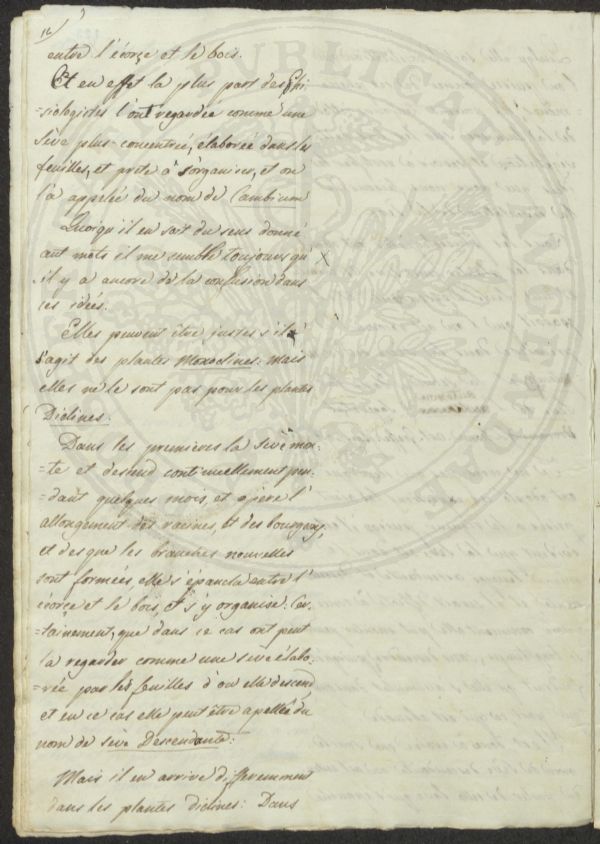 16
entre l'écorçe et le bois.
Et en effet la plus part des Phi-
=siologistes l'ont regardée comme une
seve plus concentrée, élaborée dans les
feuilles, et prete à s'organiser, et on
l'a appelée du nom de Cambium
Quoiqu'il en soit du sens donné
aut mots il me semble toujours qu' X
il y a ancore de la confusion dans
ces idées.
Elles peuvent être justes s'il
s'agit des plantes Monoclines: Mais
elles ne le sont pas pour les plantes
Diclines.
Dans les premières la seve mon-
=te et descend continuellement pen-
=dant quelques mois, et opere l'
allongement des racines, et des bourgeons,
et des que les branches nouvelles
sont formées, elle s'épanche entre l'
écorçe et le bois, et s'y organise. Cer-
=tainement, que dans ce cas ont peut
la regarder comme une seve élabo-
=rée par les feuilles d'ou elle descend,
et en ce cas elle peut être apellée du
nom de seve Descendante:
Mais il en arrive differemment
dans les plantes diclines: Dans